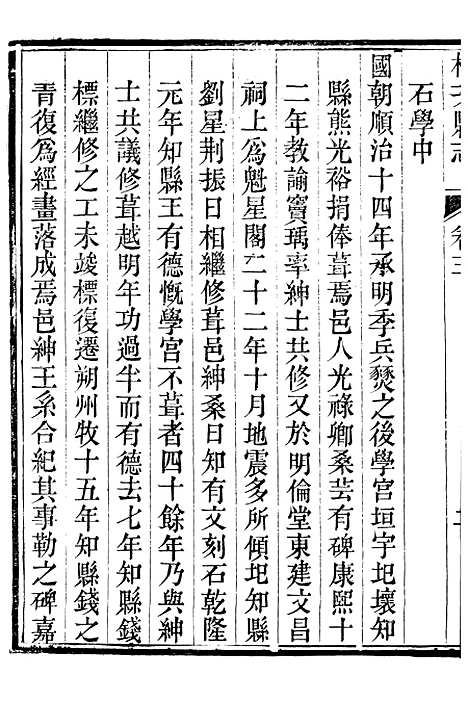 石學中
國朝順治十四年承明季兵燹之後學宮垣宇圯壞知
縣熊光裕捐俸葺焉邑人光祿卿桑芸有碑康熙十
二年教諭竇瑀率紳士共修又於明倫堂東建文昌
祠上為魁星閣二十二年十月地震多所傾圯知縣
劉星荆振日相繼修葺邑紳桑日知有文刻石乾隆
元年知縣王有德慨學宮不葺者四十餘年乃與紳
士共議修葺越明年功過半而有德去七年知縣錢
標繼修之工未竣標復遷朔州牧十五年知縣錢之
青復為經畫落成焉邑紳王系合紀其事勒之碑嘉